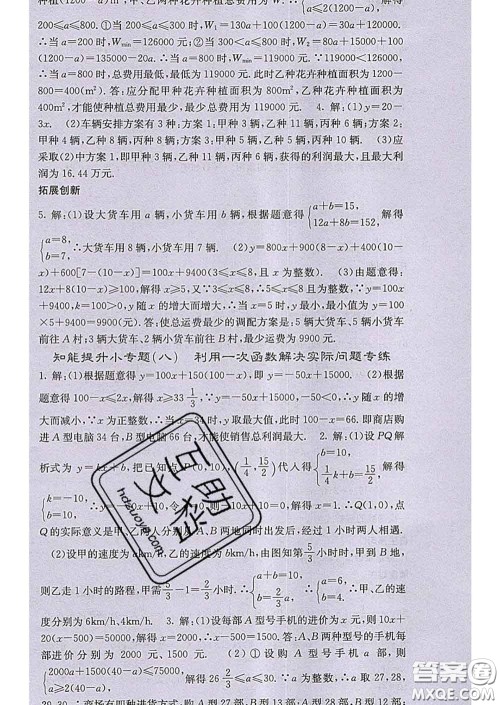 种植(1200-a)m²,
≤2(1200-a), 解得
200≤a≤800.①当 200≤a<300 时,W₁=130a+100(1200-a)=30a+120000.
∴当 a=200 时,Wmin=126000 元;②当 300≤a≤800 时,W₂=80a+15000+100
(1200-a)=135000-20a.∴当 a=800 时,Wmin=119000 元.∵119000<126000,
∴当 a=800 时,总费用最低,最低为 119000 元.此时乙种花卉种植面积为 1200-
800=400(m²).答:应分配甲种花卉种植面积为 800m²,乙种花卉种植面积为
400m²,才能使种植总费用最少,最少总费用为 119000 元. 4. 解:(1)y=20-
3x. (2)车辆安排方案有 3 种:方案 1:甲种 3 辆,乙种 11 辆,丙种 6 辆;方案 2:
甲种 4 辆,乙种 8 辆,丙种 8 辆;方案 3:甲种 5 辆,乙种 5 辆,丙种 10 辆. (3)应
采取(2)中方案 1,即甲种 3 辆,乙种 11 辆,丙种 6 辆,获得的利润最大,且最大利
润为 16.44 万元.
拓展创新
5. 解:(1)设大货车用 a 辆,小货车用 b 辆,根据题意得{a+b=15, 12a+8b=152, 解得
{a=8, b=7, ∴大货车用 8 辆,小货车用 7 辆. (2)y=800x+900(8-x)+400(10-
x)+600[7-(10-x)]=100x+9400(3≤x≤8,且 x 为整数). (3)由题意得:
12x+8(10-x)≥100,解得 x≥5,又∵3≤x≤8,∴5≤x≤8 且为整数.∵y=100x
+9400,k=100>0,y 随 x 的增大而增大,∴当 x=5 时,y 最小,最小值为 y=100×
5+9400=9900(元).答:使总运费最少的调配方案是:5 辆大货车、5 辆小货车
前往 A 村;3 辆大货车、2 辆小货车前往 B 村,最少运费为 9900 元.
知能提升小专题(八) 利用一次函数解决实际问题专练
1. 解:(1)根据题意得 y=100x+150(100-x),即 y=-50x+15000. (2)根
据题意得 100-x≤2x,解得 x≥33 1/3,∵y=-50x+15000,-50<0,∴y 随 x 的增
大而减小,∵x 为正整数,∴当 x=34 时,y 取最大值,此时 100-x=66.即商店购
进 A 型电脑 34 台,B 型电脑 66 台,才能使销售总利润最大. 2. 解:(1)设 PQ 解
析式为 y=kx+b,把已知点 P(0,10),(1/4,15/2)代入得{b=10, 1/4k+b=15/2, 解得
{k=-10, b=10, x+10,当 y=0 时,x=1,∴点 Q 的坐标为(1,0).点
Q 的实际意义是甲、乙两人分别从 A、B 两地同时出发后,经过 1 小时两人相遇.
(2)设甲的速度为 akm/h,乙的速度为 bkm/h,由图知第 5/3 小时时,甲到 B 地,
则乙走 1 小时的路程,甲需 5/3-1=2/3 小时,∴{a+b=10, b=2/3a, ∴{a=6, b=4, ∴甲、乙的速
度分别为 6km/h、4km/h. 3. 解:(1)设每部 A 型号手机的进价为 x 元,则 10x+
20(x-500)=50000,解得 x=2000.∴x-500=1500.答:A、B 两种型号的手机每
部进价分别为 2000 元、1500 元. (2)①设购 A 型号手机 a 部,则
{2000a+1500(40-a)≤75000, a≥2(40-a), 解得 26 2/3≤a≤30.∵a 为整数,∴a 取 27,28,
29,30.∴商场有四种进货方式.购 A 型 27 部,B 型 13 部;A 型 28 部,B 型 12 部;
互助
文档
hdzuoye.com
作业帮
MXQE.COM